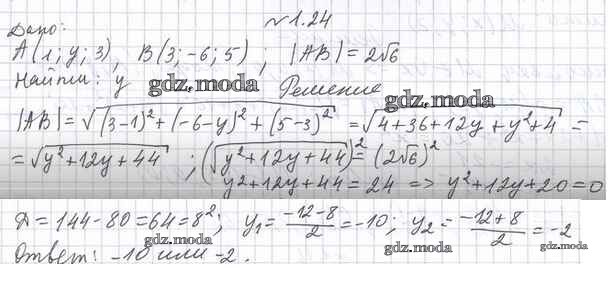 № 1.24
Дано:
A(1; y; 3), B(3; -6; 5); |AB| = 2√6
Найти: y gdz.moda Решение
gdz.moda
|AB| = √((3-1)² + (-6-y)² + (5-3)²) = √(4+36+12y+y²+4) =
= √(y²+12y+44) ; (√(y²+12y+44))² = (2√6)²
y²+12y+44 = 24 => y²+12y+20=0
Д = 144-80=64=8²; y₁ = (-12-8)/2 = -10; y₂ = (-12+8)/2 = -2
gdz.moda gdz.moda gdz.moda
Ответ: -10 или -2.